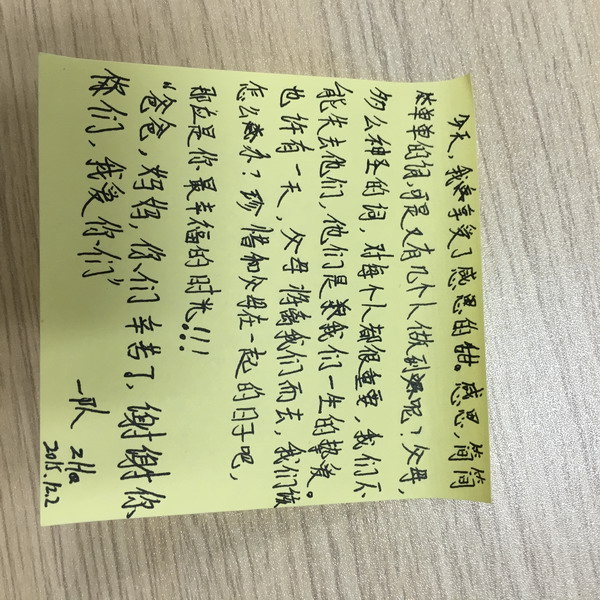 今天，我来享受了感恩的甜。感恩，简简
单单的词，可是又有几个人做到呢？父母，
多么神圣的词，对每个人都很重要，我们不
能失去他们，他们是我们一生的挚爱。
也许有一天，父母将离我们而去，我们该
怎么办？珍惜和父母在一起的日子吧，
那应是你最幸福的时光!!!
“爸爸，妈妈，你们辛苦了，谢谢你
你们，我爱你们”
一队
2015.12.2